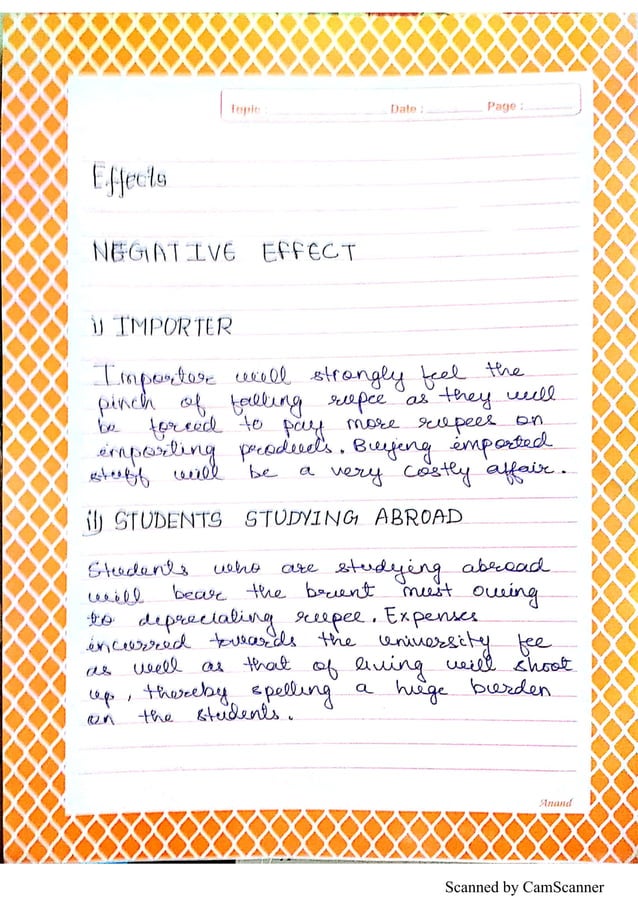 Topic : Date : Page :
Effects
NEGATIVE EFFECT
i) IMPORTER
Importer will strongly feel the
pinch of falling rupee as they will
be forced to pay more rupees on
importing products. Buying imported
stuff will be a very costly affair.
ii) STUDENTS STUDYING ABROAD
Students who are studying abroad
will bear the brunt must owing
to depreciating rupee. Expenses
incurred towards the university fee
as well as that of living will shoot
up, thereby spelling a huge burden
on the students.
Anand
Scanned by CamScanner